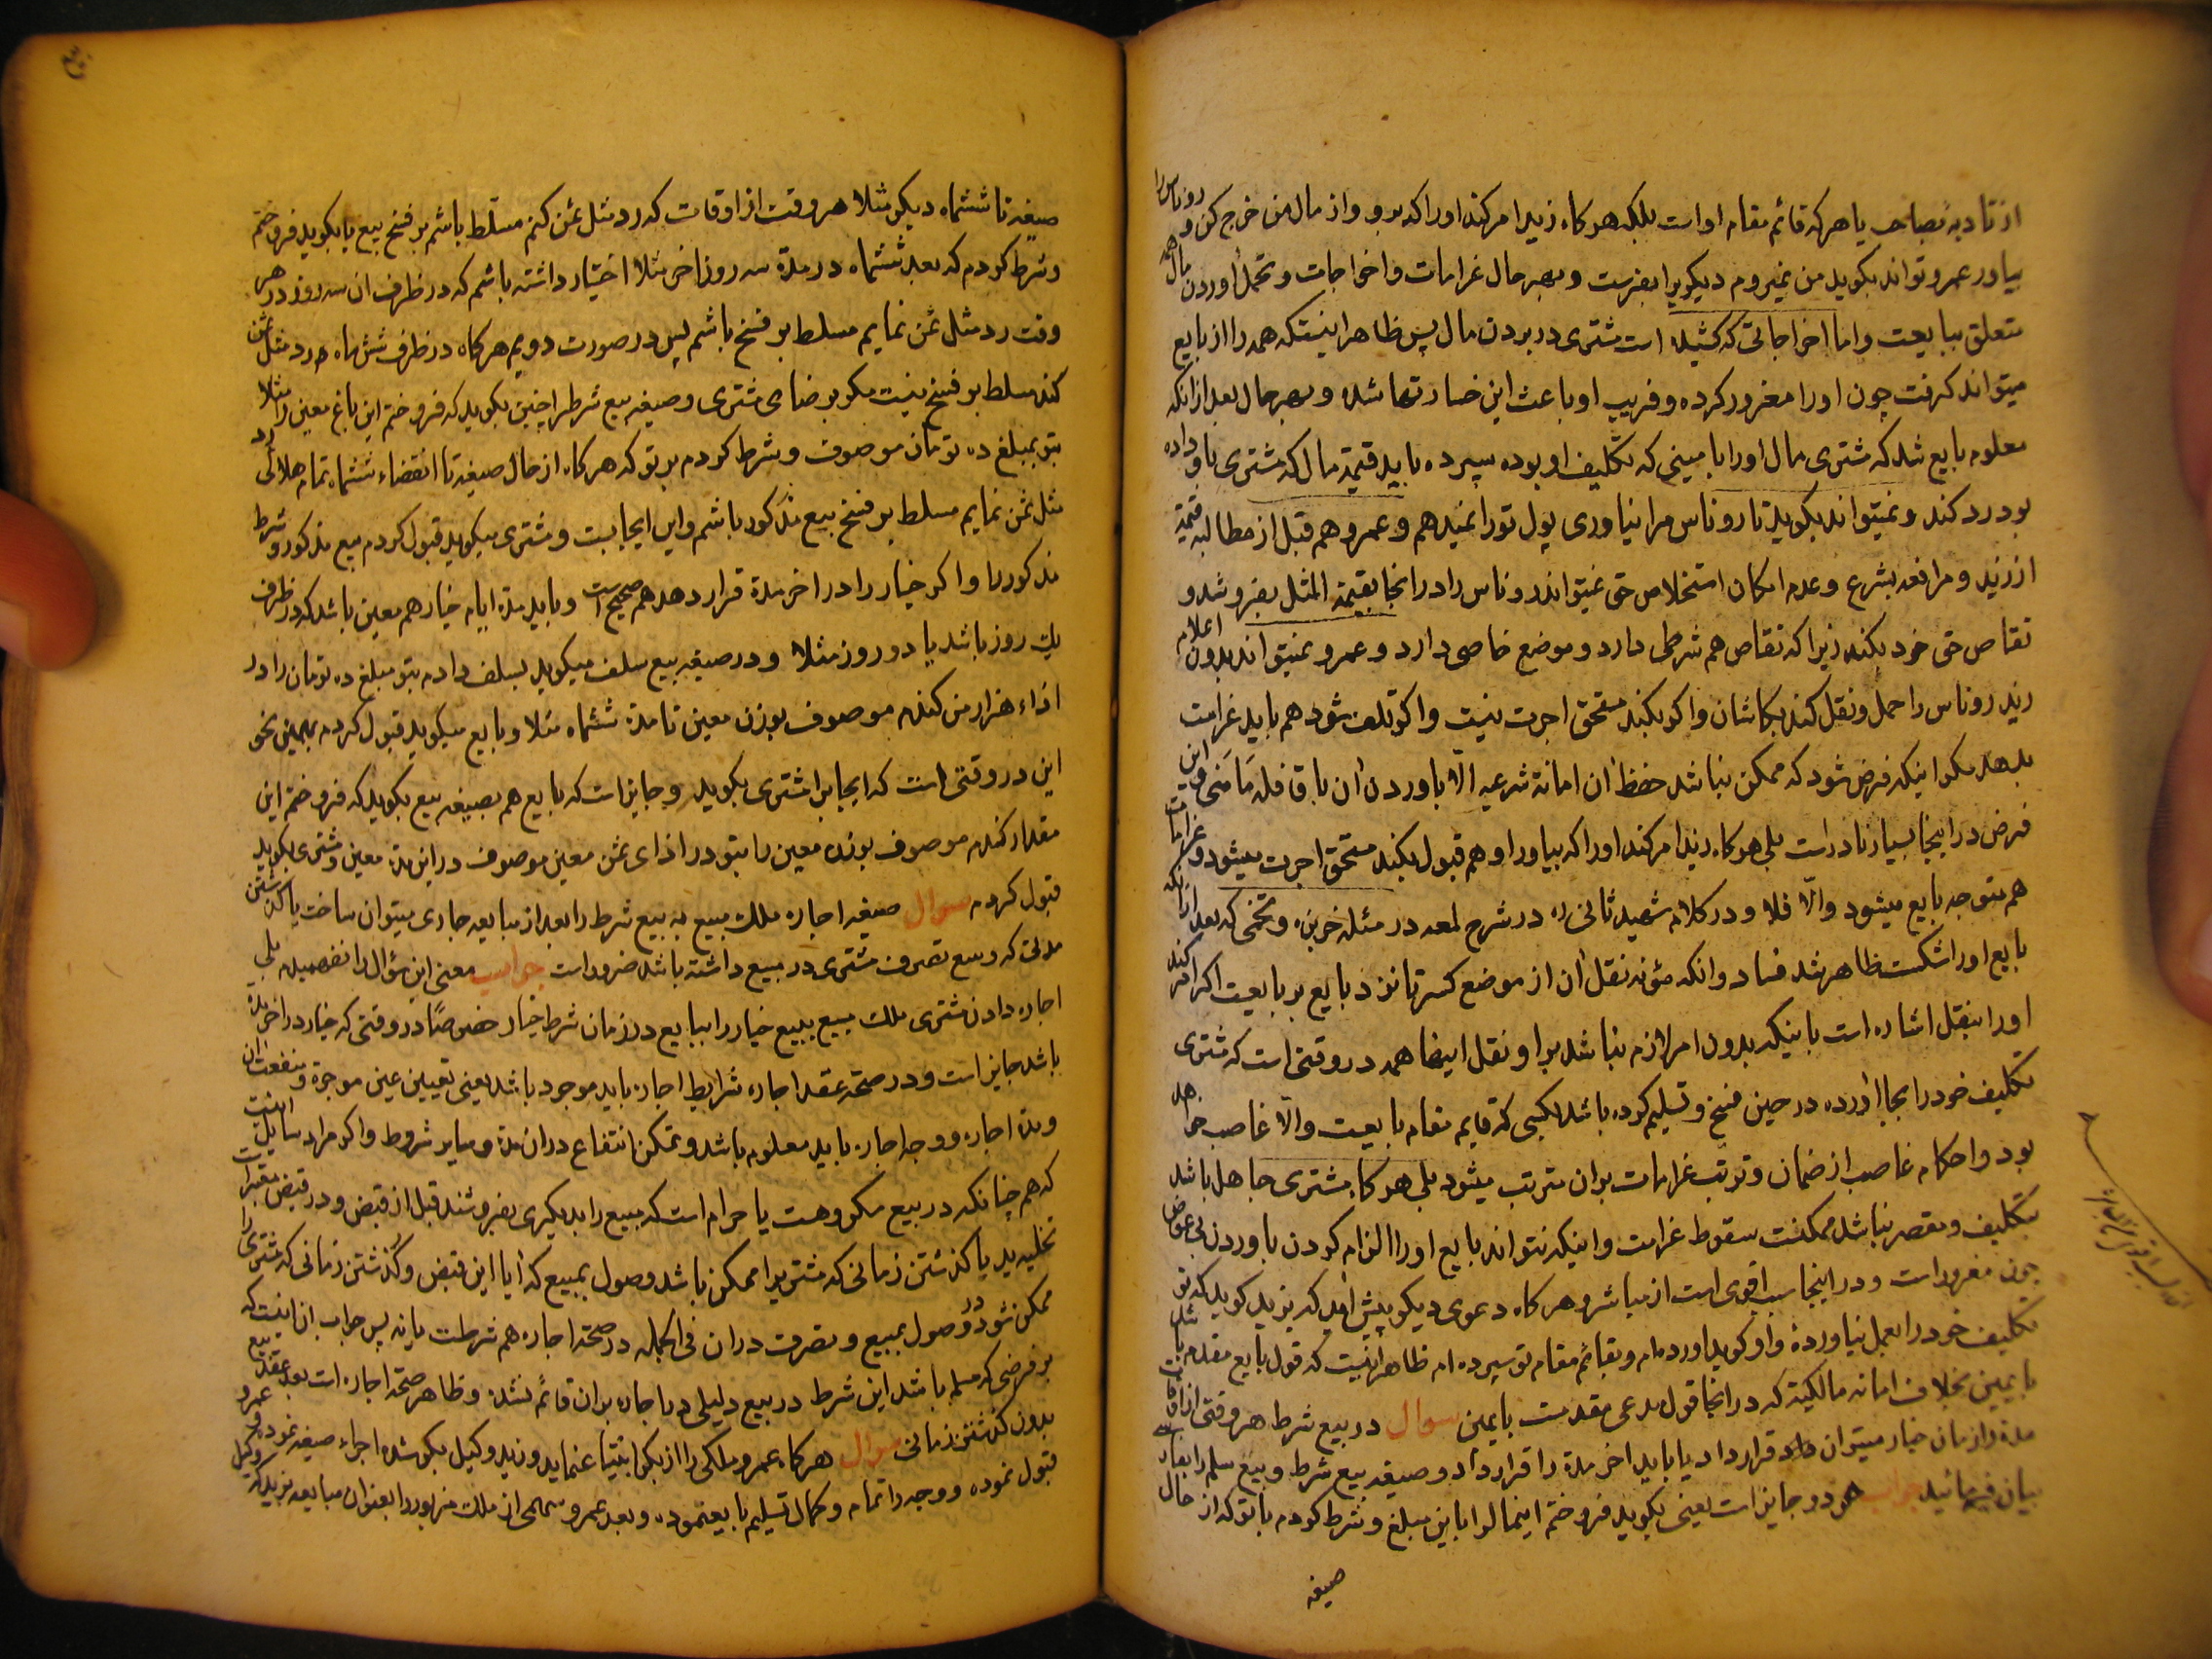 از تادیه بصاحب یا هر که قائم مقام او است بلکه هرگاه زید امر کند او را که برو و از مال من خرج کن و روناس را
بیاور عمرو تواند بگوید من نمیروم دیگری را بفرست و بهر حال غرامات و اخراجات و تحمل آوردن مال همه
متعلق ببایعست و اما اخراجاتی که کشیده است مشتری در بردن مال پس ظاهر اینستکه همه را از بایع
میتواند گرفت چون او را مغرور کرده و فریب او باعث این خسارتها شده و بهر حال بعد از انکه
معلوم بایع شد که مشتری مال او را بامینی که تکلیف او بوده سپرده باید قیمة مال که مشتری باو داده
بود رد کند و نمیتواند بگوید تا روناس مرا نیاوری پول تو را نمیدهم و عمرو هم قبل از مطالبه قیمة
از زید و مرافعه بشرع و عدم امکان استخلاص حق نمیتواند روناس را در انجا بقیمة المثل بفروشد و
تقاص حق خود بکند زیرا که تقاص هم شرطی دارد و موضع خاصی دارد و عمرو نمیتواند بدون اعلام
زید روناس را حمل و نقل کند بکاشان و اگر بکند مستحق اجرت نیست و اگر تلف شود هم باید غرامت
بدهد مگر اینکه فرض شود که ممکن نباشد حفظ ان امانة شرعیه الّا باوردن ان با قافله و این
فرض در اینجا بسیار نادر است بلی هرگاه زید امر کند او را که بیاور و او هم قبول بکند مستحق اجرت میشود و غرامات
هم متوجه بایع میشود و الّا فلا و در کلام شهید ثانی ره در شرح لمعه در مسئله خربزه و تخمی که بعد از انکه
بایع او را شکست ظاهر شد فساد و انکه مؤنه نقل ان از موضع کسر تا نزد بایع بر بایعست اگر امر کند
او را بنقل اشاره است باینکه بدون امر لازم نباشد بر او نقل ایضا همه در وقتی است که مشتری
تکلیف خود را بجا آورده در حین فسخ و تسلیم کرده باشد بکسی که قایم مقام بایعست و الّا غاصب خواهد
بود و احکام غاصب از ضمان و ترتب غرامات بران مترتب میشود بلی هرگاه مشتری جاهل باشد
بتکلیف و مقصر نباشد ممکنست سقوط غرامت و اینکه نتواند بایع او را الزام کردن باوردن بی عوض
چون مغرور است و در اینجا سبب اقوی است از مباشر و هرگاه دعوی دیگر پیش اید که زید گوید که تو
تکلیف خود را بعمل نیاوردهٔ و او گوید اورده‌ام و بقائم مقام تو سپرده‌ام ظاهر اینست که قول بایع مقدم باشد
با یمین بخلاف امانه مالکیة که در انجا قول مدعی مقدمست با یمین سوال در بیع شرط هر وقتی از اوقات
مدة را زمان خیار میتوان قرار داد یا باید اخر مدة را قرار داد و صیغه بیع شرط و بیع سلم را
بیان فرمائید جواب هر دو جایز است یعنی بگوید فروختم اینمال را باین مبلغ و شرط کردم با تو که از حال
صیغه
بیع
صیغه تا ششماه دیگر مثلا هر وقت از اوقات که رد مثل ثمن کنم مسلّط باشم بر فسخ بیع یا بگوید فروختم
و شرط کردم که بعد ششماه در مدة سه روز اخر مثلا اختیار داشته باشم که در ظرف ان سه روز در هر
وقت رد مثل ثمن نمایم مسلط بر فسخ باشم پس در صورت دویم هرگاه در ظرف شش ماه رد مثل ثمن
کند مسلط بر فسخ نیست مگر برضای مشتری و صیغه بیع شرط را چنین بگوید که فروختم این باغ معین را مثلا
بتو بمبلغ ده تومان موصوف و شرط کردم بر تو که هرگاه از حال صیغه تا انقضاء ششماه تمام هلالی رد
مثل ثمن نمایم مسلط بر فسخ بیع مذکور باشم و این ایجابست و مشتری میگوید قبول کردم بیع مذکور و شرط
مذکور را و اگر خیار را در اخر مدة قرار دهد هم صحیح است و باید مدة ایام خیار هم معین باشد که در ظرف
یک روز باشد یا دو روز مثلا و در صیغه بیع سلف میگوید بسلف دادم بتو مبلغ ده تومان را در
ازاء هزار من کندم موصوف بوزن معین تا مدة ششماه مثلا و بایع میگوید قبول کردم بهمین نحو
این در وقتی است که ایجاب را مشتری بگوید و جایز است که بایع هم بصیغه بیع بگوید که فروختم این
مقدار کندم موصوف بوزن معین را بتو در ازای ثمن معین موصوف در این مدة معین و مشتری بگوید
قبول کردم سوال صیغه اجاره ملک مبیع به بیع شرط را بعد از مبایعه جاری میتوان ساخت یا گذشتن
مدتی که وسع تصرف مشتری در مبیع داشته باشد ضرور است جواب معنی این سؤال را نفهمیدم بلی
اجاره دادن مشتری ملک مبیع ببیع خیار را ببایع در زمان شرط خیار خصوصًا در وقتی که خیار در اخر مدة
باشد جایز است و در صحة عقد اجاره شرایط اجاره باید موجود باشد یعنی تعیین عین موجرة و منفعت ان
و مدة اجاره و وجه اجاره باید معلوم باشد و تمکن انتفاع در ان مدة و سایر شروط و اگر مراد سایل اینست
که هم چنانکه در بیع مکروهست یا حرام است که مبیع را بدیگری بفروشند قبل از قبض و در قبض معتبر است
تخلیه ید یا گذشتن زمانی که مشتری را ممکن باشد وصول بمبیع که ایا این قبض و گذشتن زمانی که مشتری را
ممکن شود وصول بمبیع و تصرف در ان فی الجمله در صحة اجاره هم شرطست یا نه پس جواب ان اینست که
بر فرضی که مسلم باشد این شرط در بیع دلیلی در اجاره بران قائم نشده و ظاهر صحة اجاره است بعد عقد بیع
بدون گذشتن زمانی سوال هرگاه عمرو ملکی را از بکر ابتیاع نماید و زید وکیل بکر شده اجراء صیغه نموده و عمرو
قبول نموده و وجه را تمام و کمال تسلیم بایع نموده و بعد عمرو سهمی از ملک مزبور را بعنوان مبایعه بزید که وکیل